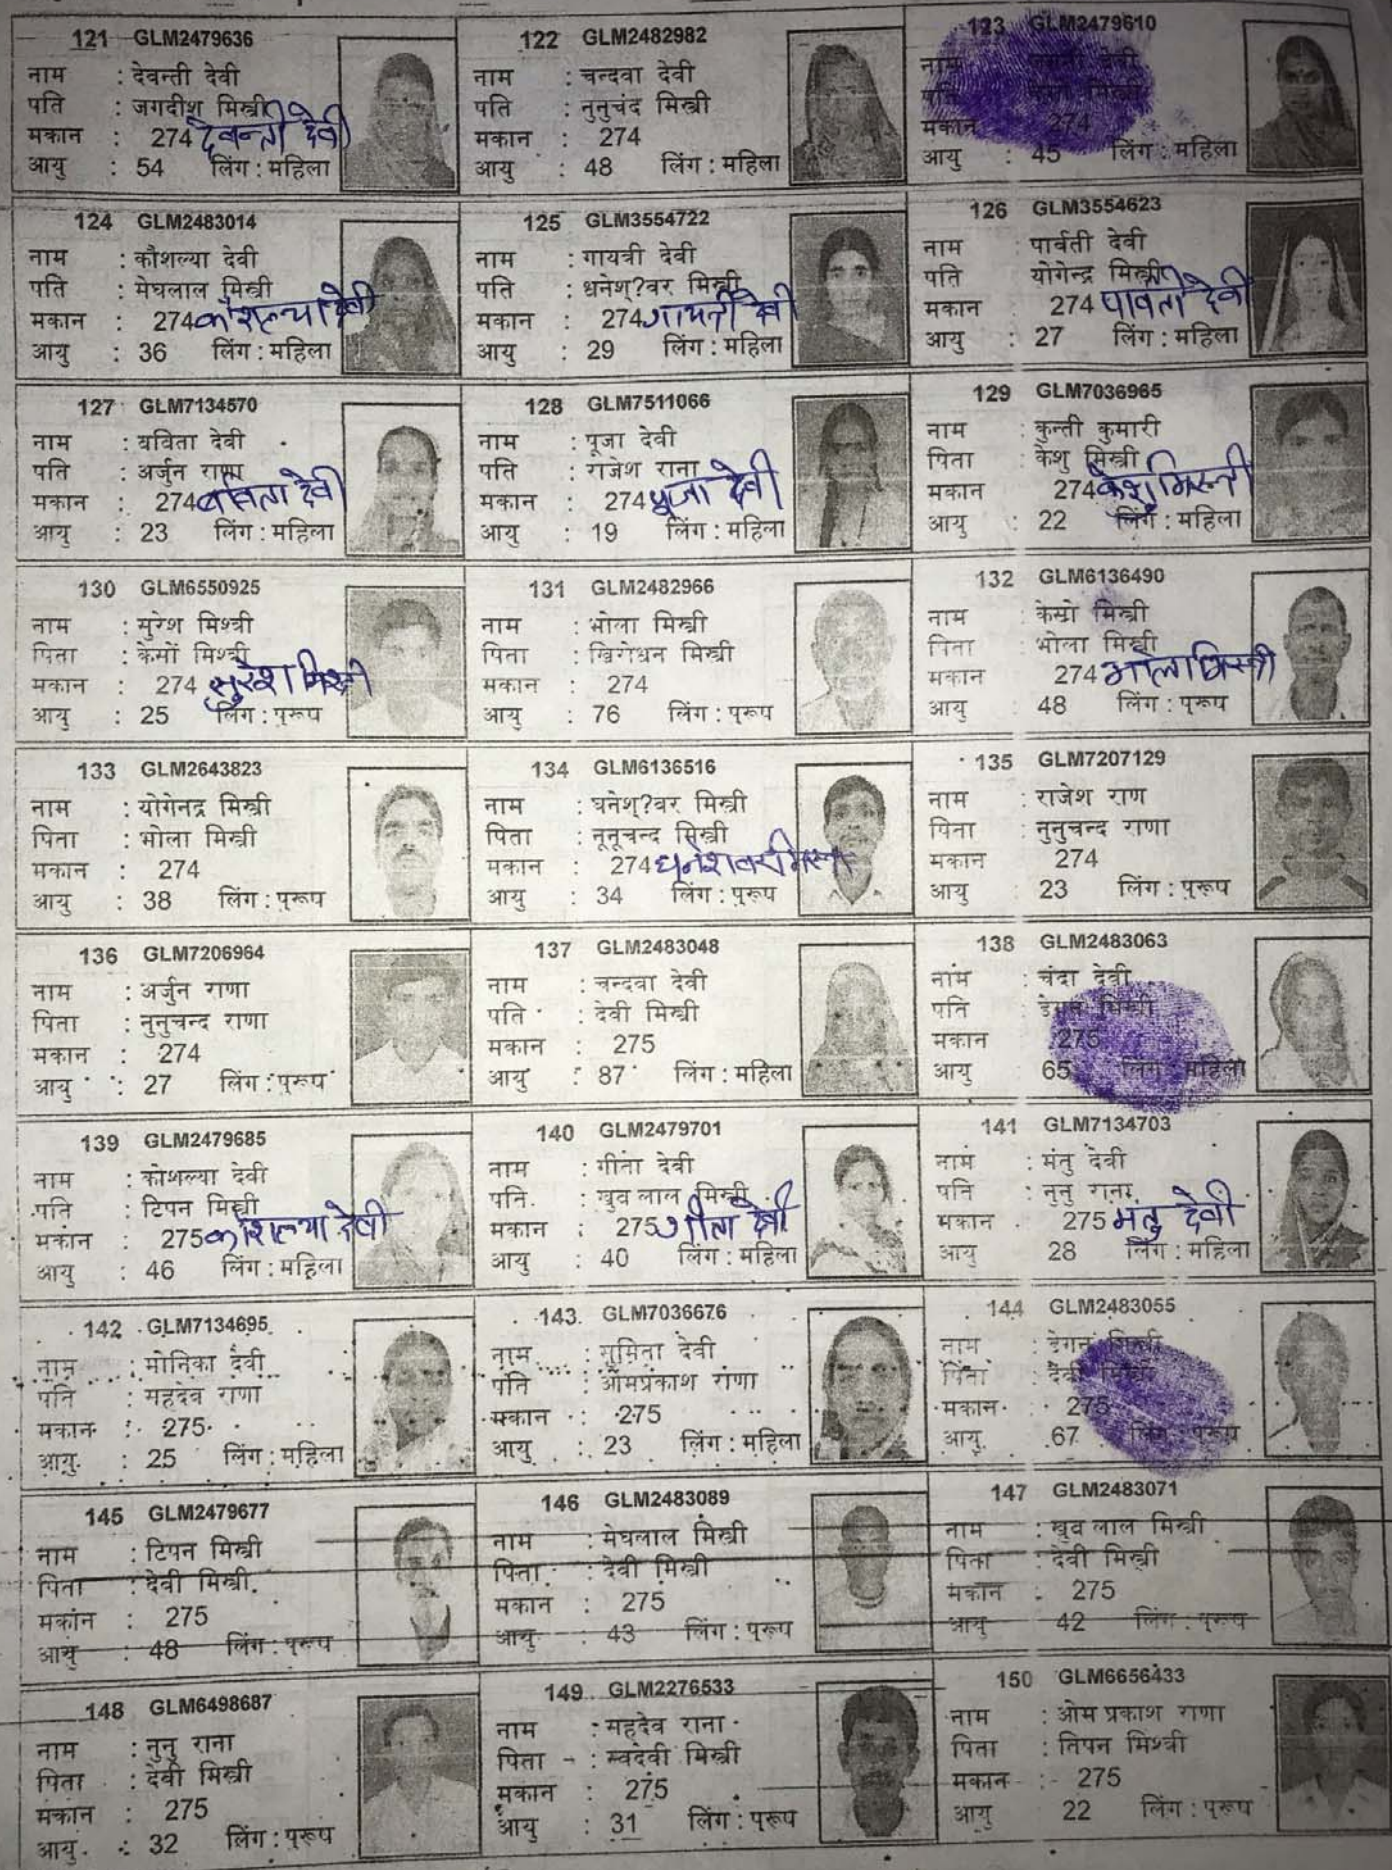 121 GLM2479636
नाम : देवन्ती देवी
पति : जगदीश मिस्त्री
मकान : 274 देवन्ती देवी
आयु : 54 लिंग : महिला
122 GLM2482982
नाम : चन्दवा देवी
पति : नुनुचंद मिस्त्री
मकान : 274
आयु : 48 लिंग : महिला
123 GLM2479610
नाम देवी
पति मिस्त्री
मकान 274
आयु : 45 लिंग : महिला
124 GLM2483014
नाम : कौशल्या देवी
पति : मेघलाल मिस्त्री
मकान : 274 कौशल्या देवी
आयु : 36 लिंग : महिला
125 GLM3554722
नाम : गायत्री देवी
पति : धनेश्?वर मिस्त्री
मकान : 274 गायत्री देवी
आयु : 29 लिंग : महिला
126 GLM3554623
नाम : पार्वती देवी
पति योगेन्द्र मिस्त्री
मकान : 274 पार्वती देवी
आयु : 27 लिंग : महिला
127 GLM7134570
नाम : बविता देवी
पति : अर्जुन राणा
मकान : 274 बविता देवी
आयु : 23 लिंग : महिला
128 GLM7511066
नाम : पूजा देवी
पति : राजेश राना
मकान : 274 पूजा देवी
आयु : 19 लिंग : महिला
129 GLM7036965
नाम : कुन्ती कुमारी
पिता : केशु मिस्त्री
मकान 274 केशु मिस्त्री
आयु : 22 लिंग : महिला
130 GLM6550925
नाम : सुरेश मिश्त्री
पिता : केसों मिश्त्री
मकान : 274 सुरेश मिस्त्री
आयु : 25 लिंग : पुरूष
131 GLM2482966
नाम : भोला मिस्त्री
पिता : खिरोधन मिस्त्री
मकान : 274
आयु : 76 लिंग : पुरूष
132 GLM6136490
नाम : केसो मिस्त्री
पिता : भोला मिस्त्री
मकान : 274 भोला मिस्त्री
आयु : 48 लिंग : पुरूष
133 GLM2643823
नाम : योगेनद्र मिस्त्री
पिता : भोला मिस्त्री
मकान : 274
आयु : 38 लिंग : पुरूष
134 GLM6136516
नाम : घनेश्?वर मिस्त्री
पिता : नूनूचन्द मिस्त्री
मकान : 274 धनेशवर मिस्त्री
आयु : 34 लिंग : पुरूष
135 GLM7207129
नाम : राजेश राण
पिता : नुनुचन्द राणा
मकान 274
आयु : 23 लिंग : पुरूष
136 GLM7206964
नाम : अर्जुन राणा
पिता : नुनुचन्द राणा
मकान : 274
आयु : 27 लिंग : पुरूष
137 GLM2483048
नाम : चन्दवा देवी
पति : देवी मिस्त्री
मकान : 275
आयु : 87 लिंग : महिला
138 GLM2483063
नाम : चंदा देवी
पति : मिस्त्री
मकान 275
आयु 65 लिंग : महिला
139 GLM2479685
नाम : कोशल्या देवी
पति : टिपन मिस्त्री
मकान : 275 कोशल्या देवी
आयु : 46 लिंग : महिला
140 GLM2479701
नाम : गीता देवी
पति : खुव लाल मिस्त्री
मकान : 275 गीता देवी
आयु : 40 लिंग : महिला
141 GLM7134703
नाम : मंतु देवी
पति : नुनु राना
मकान 275 मतु देवी
आयु 28 लिंग : महिला
142 GLM7134695
नाम : मोनिका देवी
पति : महदेव राणा
मकान : 275
आयु : 25 लिंग : महिला
143 GLM7036676
नाम : सुमिता देवी
पति : ओमप्रकाश राणा
मकान : 275
आयु : 23 लिंग : महिला
144 GLM2483055
नाम : डेगन मिस्त्री
पिता : देवी मिस्त्री
मकान : 275
आयु 67 लिंग : पुरूष
145 GLM2479677
नाम : टिपन मिस्त्री
पिता : देवी मिस्त्री
मकान : 275
आयु : 48 लिंग : पुरूष
146 GLM2483089
नाम : मेघलाल मिस्त्री
पिता : देवी मिस्त्री
मकान : 275
आयु : 43 लिंग : पुरूष
147 GLM2483071
नाम : खुव लाल मिस्त्री
पिता : देवी मिस्त्री
मकान : 275
आयु 42 लिंग : पुरूष
148 GLM6498687
नाम : नुनु राना
पिता : देवी मिस्त्री
मकान : 275
आयु : 32 लिंग : पुरूष
149 GLM2276533
नाम : महदेव राना
पिता : स्वदेवी मिस्त्री
मकान : 275
आयु : 31 लिंग : पुरूष
150 GLM6656433
नाम : ओम प्रकाश राणा
पिता : तिपन मिश्त्री
मकान : 275
आयु : 22 लिंग : पुरूष